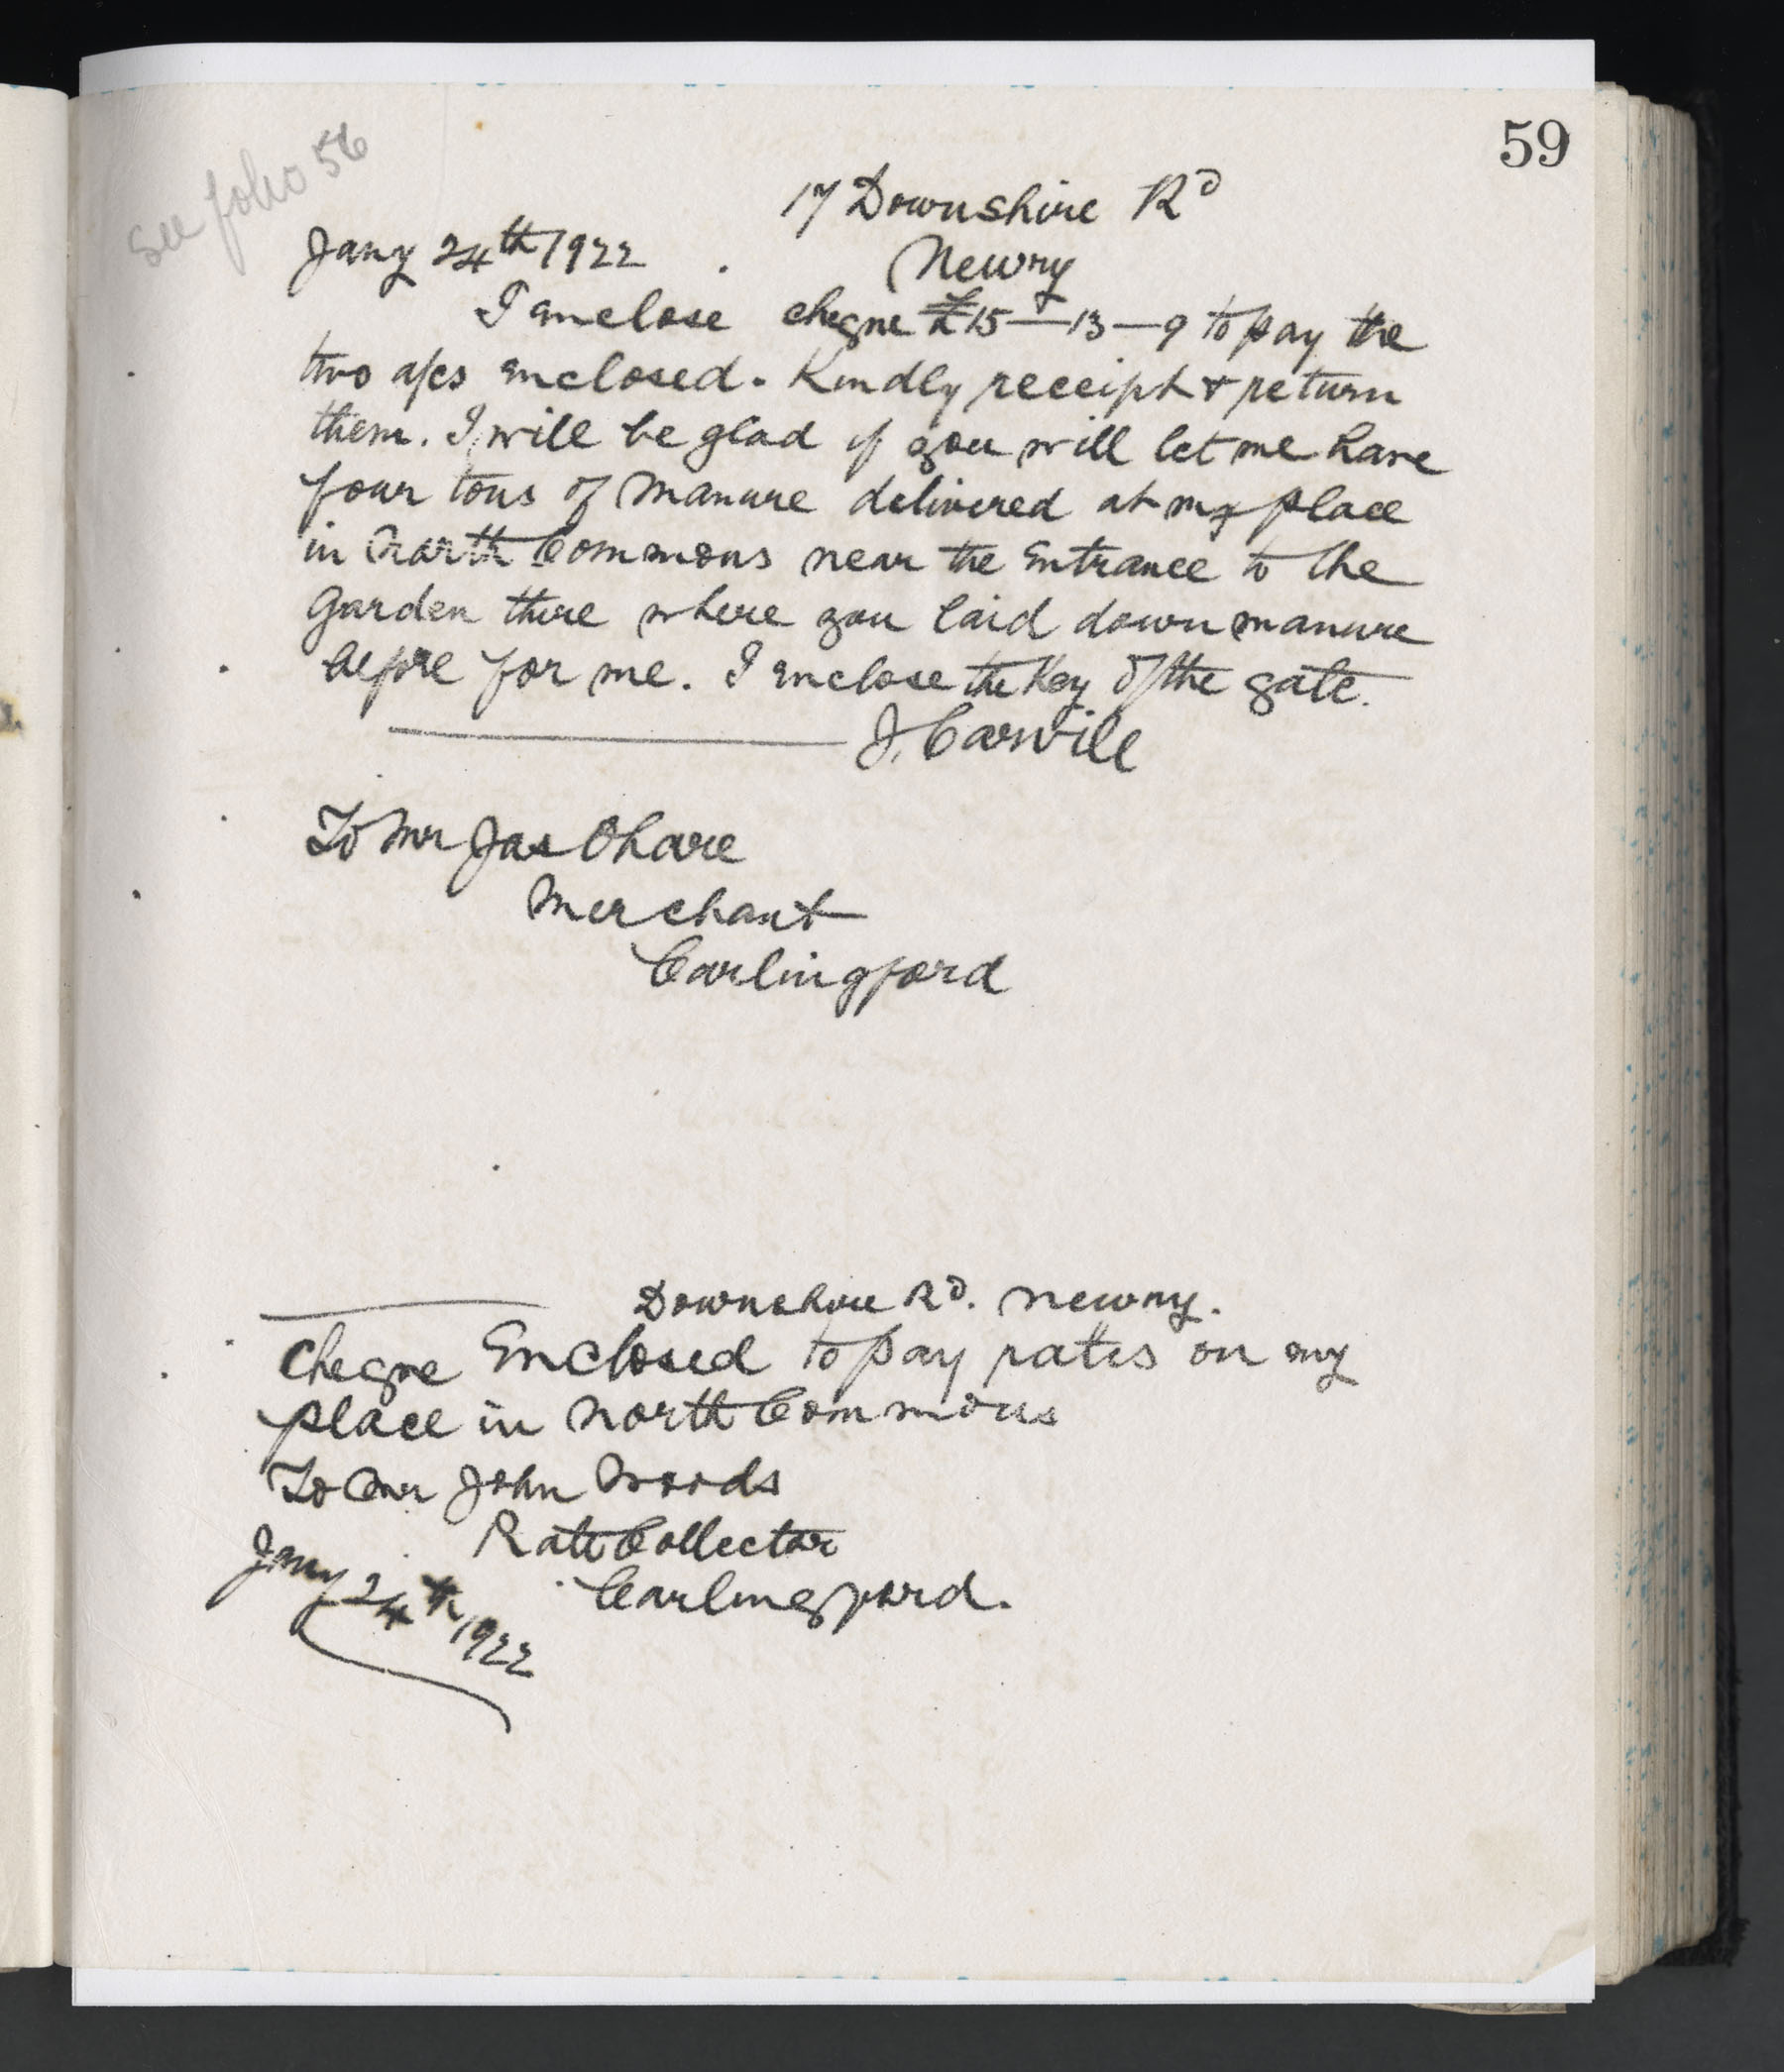 59
See folio 56
17 Downshire Rd
Jany 24th 1922
Newry
I enclose cheque £15-13-9 to pay the
two a/cs enclosed. Kindly receipt & return
them. I will be glad if you will let me have
four tons of manure delivered at my place
in North Commons near the Entrance to the
Garden there where you laid down manure
before for me. I enclose the key of the gate.
J. Carvill
To Mr Jas Ohare
Merchant
Carlingford
Downshire Rd. Newry.
Cheque Enclosed to pay rates on my
place in North Commons
To Mr John Woods
Rate Collector
Carlingford.
Jany 24th 1922